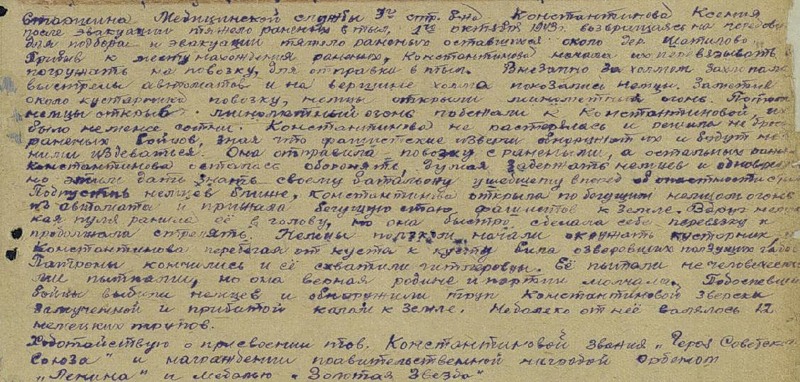 Старшина Медицинской службы 3го стр. б-на Константинова Ксения
после эвакуации тяжело раненых в тыл, 1го октября 1943г. возвращаясь на передовую
для подбора и эвакуации тяжело раненых оставшихся около дер Шатилово.
Прибыв к месту нахождения раненых, Константинова начала их перевязывать и
погружать на повозку, для отправки в тыл. Внезапно за холмом захлопали
выстрелы автоматов и на вершине холма показались немцы. Заметив
около кустарника повозку, немцы открыли минометный огонь. Потом
немцы открыв минометный огонь побежали к Константиновой, их
было не менее сотни. Константинова не растерялась и решила не бросать
раненых бойцов, зная что фашистские изверги обнаружат их и будут
издеваться. Она отправила повозку с ранеными, а
Константинова осталась обороняться, думая задержать немцев и одновремен
но этим дать знать своему батальону ушедшему вперед об опасности
Подпустив немцев ближе, Константинова открыла по бегущим немцам огонь
из автомата и прижала бегущую стаю фашистов к земле. Вдруг немец-
кая пуля ранила её в голову, но она быстро сделала себе перевязку и
продолжала стрелять. Немцы начали окружать кустарник
Константинова перебегая от куста к кусту била озверевших ползущих гадов.
Патроны кончились и её схватили гитлеровцы. Её пытали нечеловечески
ми пытками, но она верная родине и партии молчала. Подоспевшие
бойцы выбили немцев и обнаружили труп Константиновой зверски
замученной и прибитой колом к земле. Недалеко от неё валялось 12
немецких трупов.
Ходотайствую о присвоении тов. Константиновой звания „Героя Советского
Союза" и награждении правительственной наградой Орденом
„Ленина" и медалью „Золотая Звезда"